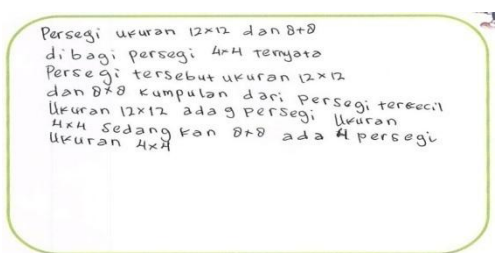 Persegi ukuran 12×12 dan 8+8
dibagi persegi 4×4 ternyata
Persegi tersebut ukuran 12×12
dan 8×8 kumpulan dari persegi terkecil
Ukuran 12×12 ada 9 persegi Ukuran
4×4 sedang kan 8×8 ada 4 persegi
Ukuran 4×4